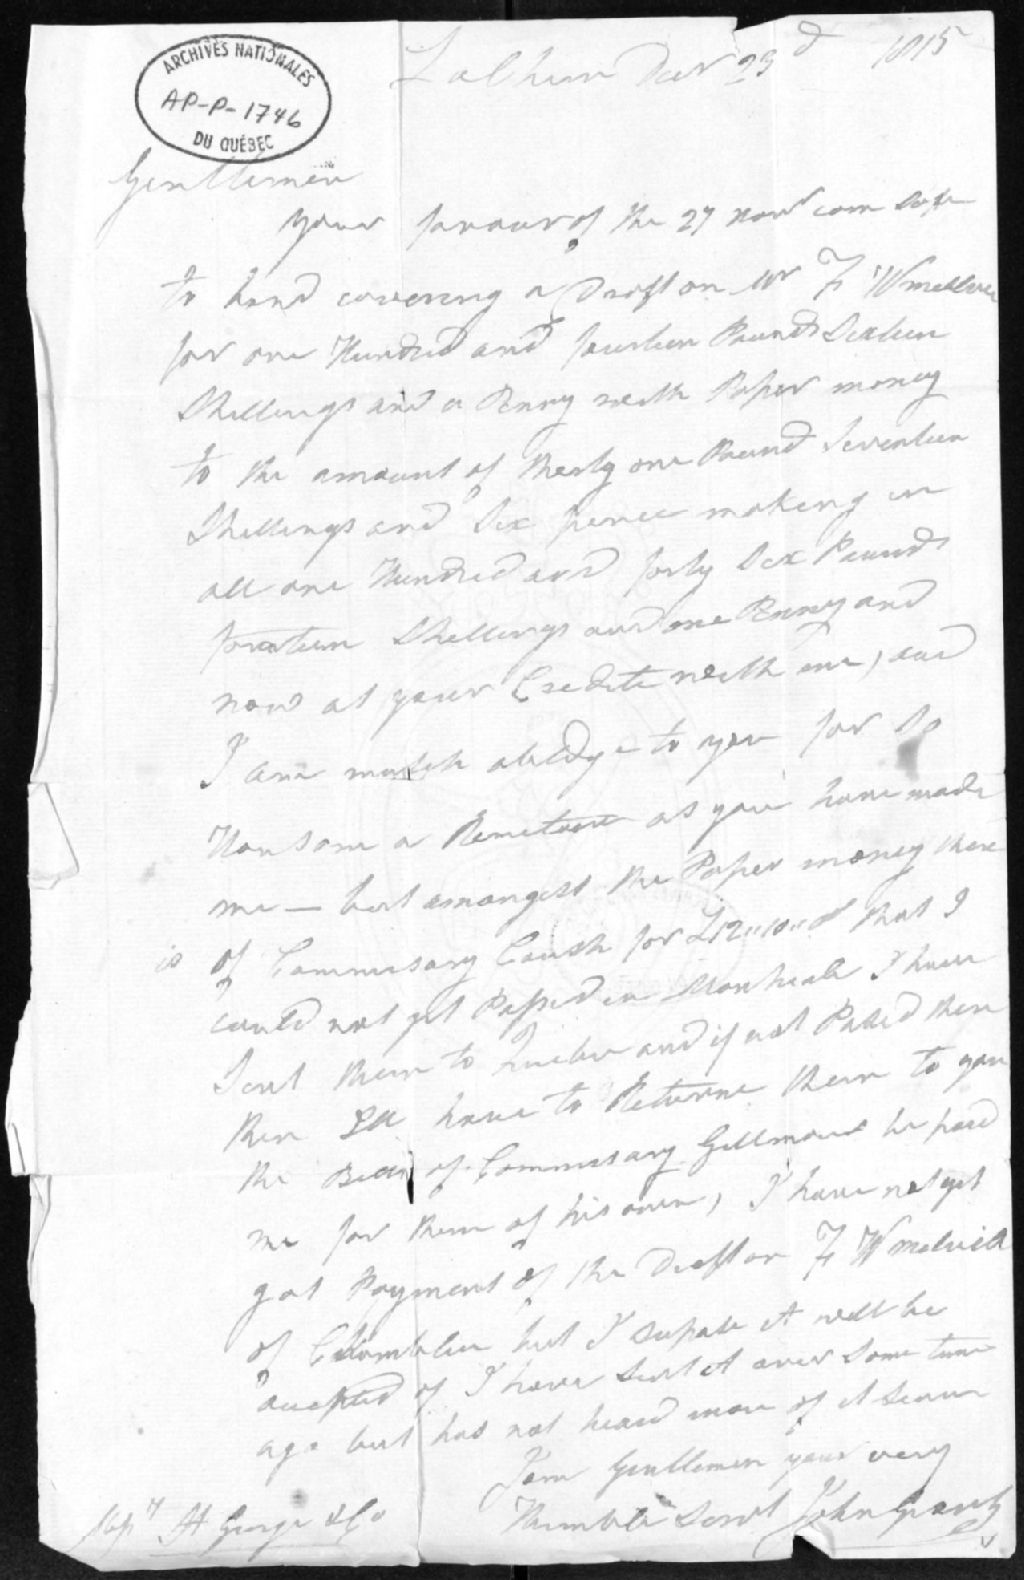 ARCHIVES NATIONALES
AP-P-1746
DU QUÉBEC
Decr 23d 1815
Gentlemen
Your favour of the 27 Novr com safe
to hand covering a Draft on Mr F W
for one Hundred and fourteen Pounds Sixteen
Shillings and a Penny with Paper money
to the amount of therty one Pound Seventeen
Shillings and Six pence making in
all one Hundred and forty Six Pounds
Shillings and one Penny and
now at your Credite with me, and
I am much abledge to you for So
Hansome a as you have made
me — but amongest the Paper money there
is of Commisary Coush for £12"10"0 that I
could not get Passed in Montreal I have
Sent them to and if not Passed there
then Ill have to Returne them to you
the of Commisary Gillmour he paid
me for them of his own, I have not yet
got Payment of the Draft on F W
of but I supose it will be
of I have Sent it over some time
ago but has not heard more of it
I am Gentlemen your very
Humble Servt John Grant
St George & Co